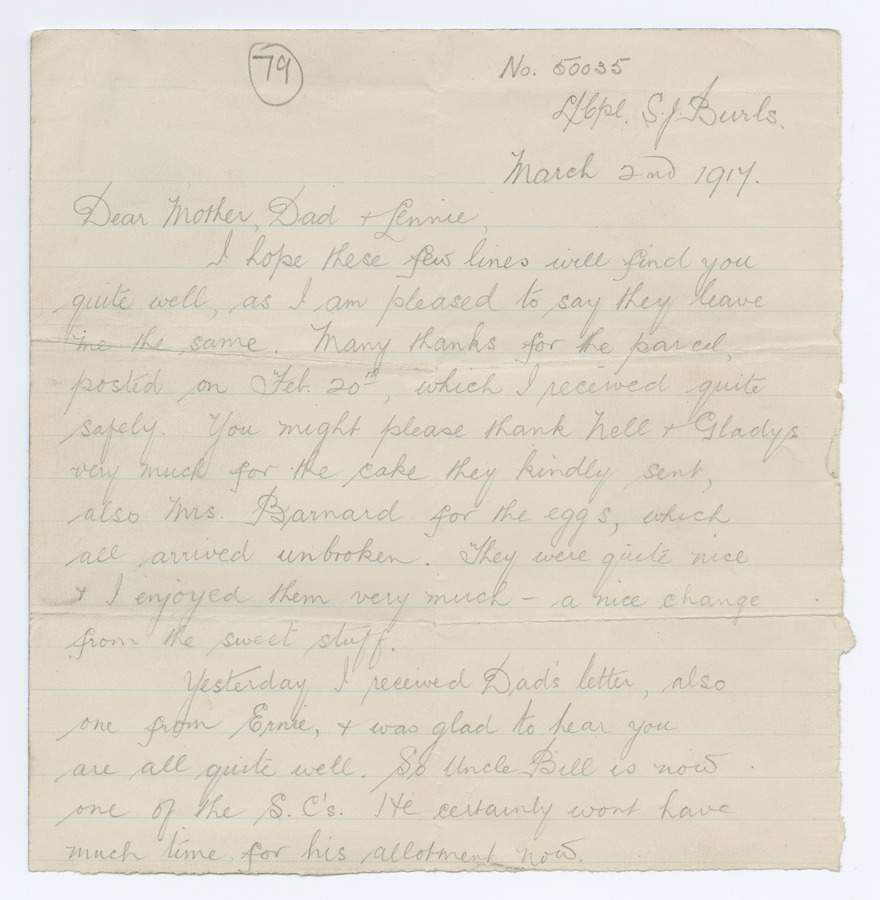 79
No. 50035
L/Cpl. S. J. Burls.
March 2nd 1917.
Dear Mother, Dad + Lennie,
I hope these few lines will find you
quite well, as I am pleased to say they leave
me the same. Many thanks for the parcel,
posted on Feb. 20th, which I received quite
safely. You might please thank Nell + Gladys
very much for the cake they kindly sent,
also Mrs. Barnard for the eggs, which
all arrived unbroken. They were quite nice
+ I enjoyed them very much - a nice change
from the sweet stuff.
Yesterday I received Dad's letter, also
one from Ernie, + was glad to hear you
are all quite well. So Uncle Bill is now
one of the S. C's. He certainly wont have
much time for his allotment now.